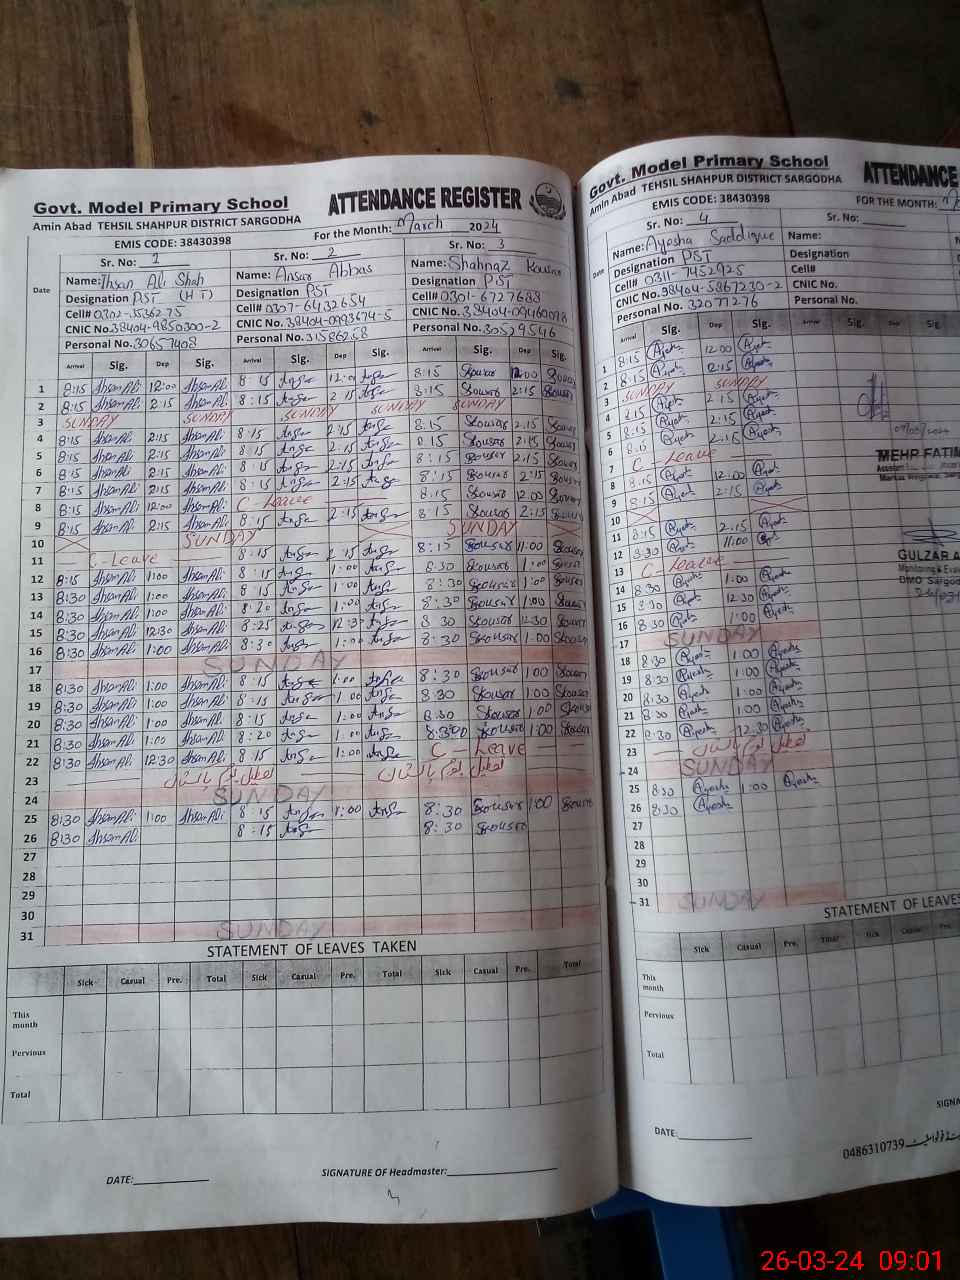 Govt. Model Primary School
ATTENDANCE REGISTER
Amin Abad TEHSIL SHAHPUR DISTRICT SARGODHA
EMIS CODE: 38430398
For the Month: March 2024
Sr. No: 1 Sr. No: 2 Sr. No: 3
Date
Name: Ihsan Ali Shah Name: Ansar Abbas Name: Shahnaz Kousar
Designation PST (HT) Designation PST Designation PST
Cell# 0302-5536275 Cell# 0307-6432654 Cell# 0301-6727688
CNIC No. 38404-9850300-2 CNIC No. 38404-0993674-5 CNIC No.
Personal No. 30657408 Personal No. 31586258 Personal No. 30529546
Arrival Sig. Dep Sig. Arrival Sig. Dep Sig. Arrival Sig. Dep Sig.
1 8:15 Ihsan Ali 12:00 Ihsan Ali 8:15 12:00 8:15 Kousar 12:00 Kousar
2 8:15 Ihsan Ali 2:15 Ihsan Ali 8:15 2:15 8:15 Kousar 2:15 Kousar
3 SUNDAY SUNDAY SUNDAY SUNDAY SUNDAY
4 8:15 Ihsan Ali 2:15 Ihsan Ali 8:15 2:15 8:15 Kousar 2:15 Kousar
5 8:15 Ihsan Ali 2:15 Ihsan Ali 8:15 2:15 8:15 Kousar 2:15 Kousar
6 8:15 Ihsan Ali 2:15 Ihsan Ali 8:15 2:15 8:15 Kousar 2:15 Kousar
7 8:15 Ihsan Ali 2:15 Ihsan Ali 8:15 2:15 8:15 Kousar 2:15 Kousar
8 8:15 Ihsan Ali 12:00 Ihsan Ali C Leave 8:15 Kousar 12:00 Kousar
9 8:15 Ihsan Ali 2:15 Ihsan Ali 8:15 2:15 8:15 Kousar 2:15 Kousar
10 SUNDAY SUNDAY
11 C-leave 8:15 2:15 8:15 Kousar 11:00 Kousar
12 8:15 Ihsan Ali 1:00 Ihsan Ali 8:15 1:00 8:30 Kousar 1:00 Kousar
13 8:30 Ihsan Ali 1:00 Ihsan Ali 8:15 1:00 8:30 Kousar 1:00 Kousar
14 8:30 Ihsan Ali 1:00 Ihsan Ali 8:20 1:00 8:30 Kousar 1:00 Kousar
15 8:30 Ihsan Ali 12:30 Ihsan Ali 8:25 12:30 8:30 Kousar 12:30 Kousar
16 8:30 Ihsan Ali 1:00 Ihsan Ali 8:30 1:00 8:30 Kousar 1:00 Kousar
17 SUNDAY
18 8:30 Ihsan Ali 1:00 Ihsan Ali 8:15 1:00 8:30 Kousar 1:00 Kousar
19 8:30 Ihsan Ali 1:00 Ihsan Ali 8:15 1:00 8:30 Kousar 1:00 Kousar
20 8:30 Ihsan Ali 1:00 Ihsan Ali 8:15 1:00 8:30 Kousar 1:00 Kousar
21 8:30 Ihsan Ali 1:00 Ihsan Ali 8:20 1:00 8:30 Kousar 1:00 Kousar
22 8:30 Ihsan Ali 12:30 Ihsan Ali 8:15 1:00 C-Leave
23 تعطیل یوم پاکستان تعطیل یوم پاکستان
24 SUNDAY
25 8:30 Ihsan Ali 1:00 Ihsan Ali 8:15 1:00 8:30 Kousar 1:00 Kousar
26 8:30 Ihsan Ali 8:15 8:30 Kousar
27
28
29
30
31 SUNDAY
STATEMENT OF LEAVES TAKEN
Sick Casual Pre. Total Sick Casual Pre. Total Sick Casual Pre. Total
This month
Pervious
Total
DATE: SIGNATURE OF Headmaster:
Govt. Model Primary School
ATTENDANCE
Amin Abad TEHSIL SHAHPUR DISTRICT SARGODHA
EMIS CODE: 38430398
FOR THE MONTH:
Sr. No: 4 Sr. No:
Date
Name: Ayesha Saddique Name:
Designation PST Designation
Cell# 0311-7452925 Cell#
CNIC No. 38404-5867230-2 CNIC No.
Personal No. 32071276 Personal No.
Arrival Sig. Dep Sig. Arrival Sig. Dep Sig.
1 8:15 Ayesha 12:00 Ayesha
2 8:15 Ayesha 2:15 Ayesha
3 SUNDAY SUNDAY
4 8:15 Ayesha 2:15 Ayesha
5 8:15 Ayesha 2:15 Ayesha
6 8:15 Ayesha 2:15 Ayesha
7 C-Leave
8 8:15 Ayesha 12:00 Ayesha
9 8:15 Ayesha 2:15 Ayesha
10
11 8:15 Ayesha 2:15 Ayesha
12 8:30 Ayesha 11:00 Ayesha
13 C-Leave
14 8:30 Ayesha 1:00 Ayesha
15 8:30 Ayesha 12:30 Ayesha
16 8:30 Ayesha 1:00 Ayesha
17 SUNDAY
18 8:30 Ayesha 1:00 Ayesha
19 8:30 Ayesha 1:00 Ayesha
20 8:30 Ayesha 1:00 Ayesha
21 8:30 Ayesha 1:00 Ayesha
22 8:30 Ayesha 12:30 Ayesha
23 تعطیل یوم پاکستان
24 SUNDAY
25 8:30 Ayesha 1:00 Ayesha
26 8:30 Ayesha
27
28
29
30
31 SUNDAY
MEHR FATIM
GULZAR A
Monitoring & Eva
DMO Sargo
STATEMENT OF LEAVES
Sick Casual Pre. Total Sick Casual Pre.
This month
Pervious
Total
SIGNA
DATE:
0486310739
26-03-24 09:01